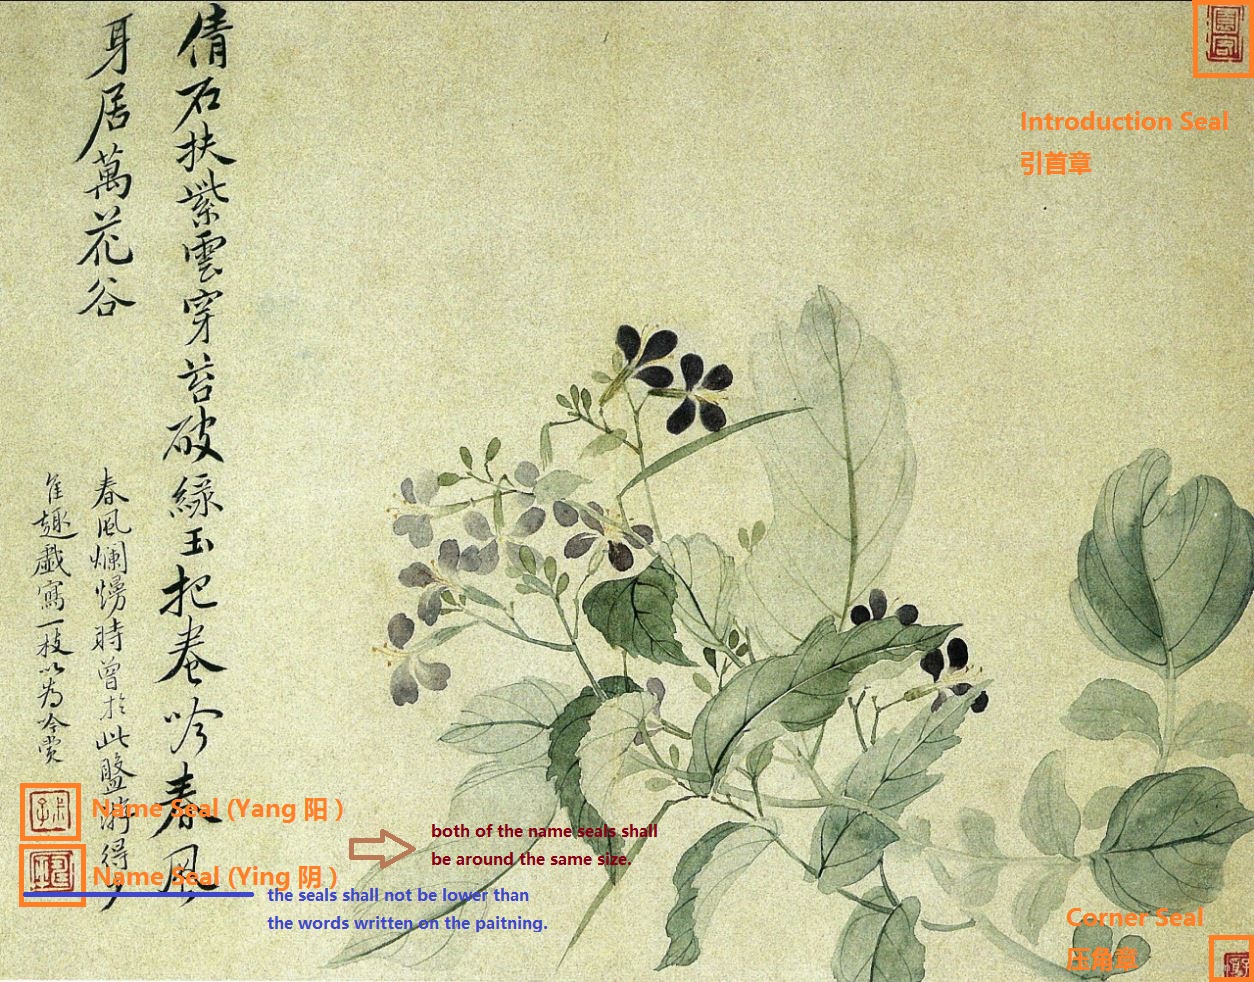 倩石扶紫雲穿苔破綠玉把卷吟春風
身居萬花谷
春風爛熳時曾於此盤游得少
佳趣戲寫一枝以為吟賞
園客
Introduction Seal
引首章
Name Seal (Yang 阳 )
Name Seal (Ying 阴 )
both of the name seals shall
be around the same size.
the seals shall not be lower than
the words written on the paitning.
Corner Seal
压角章